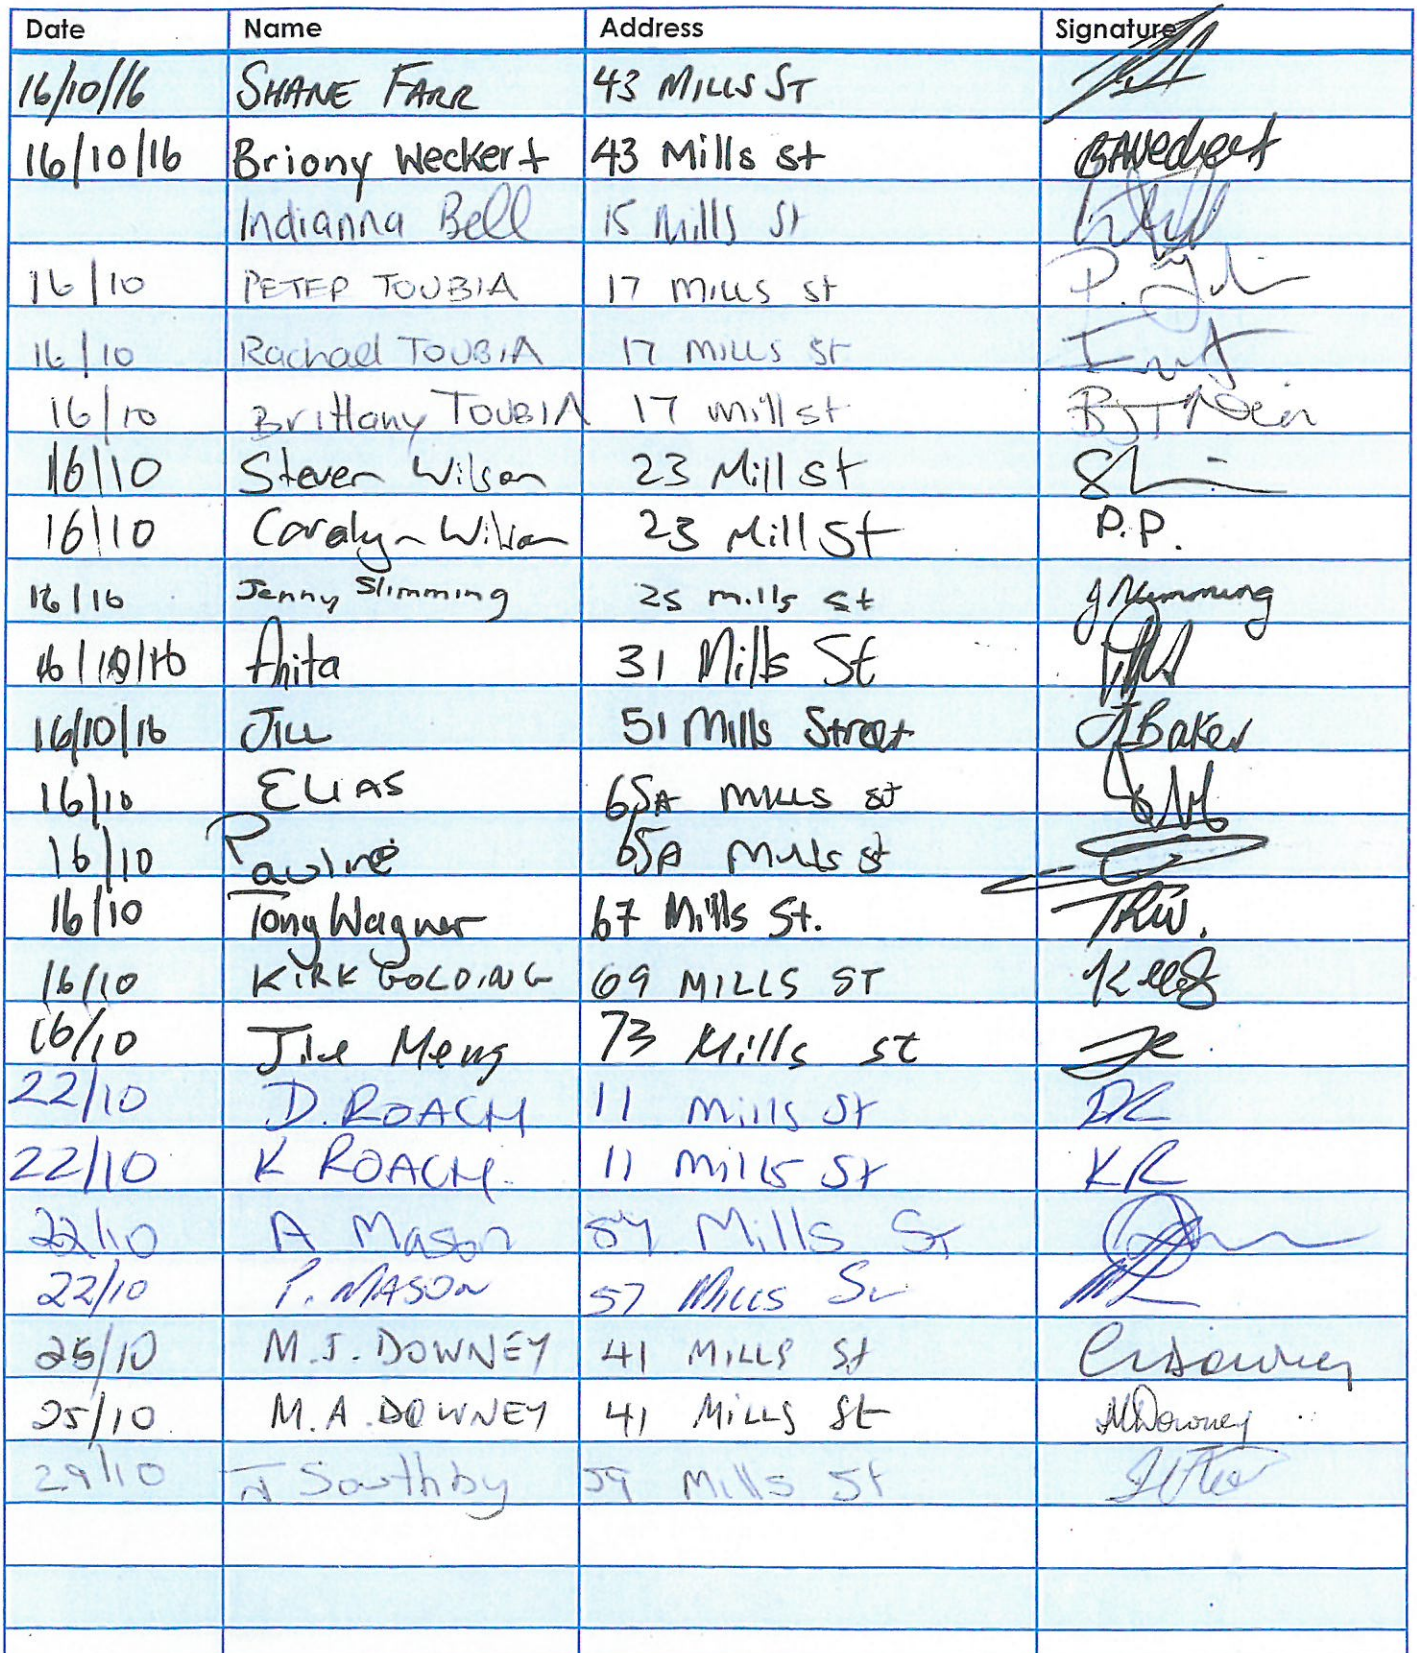 Date Name Address Signature
16/10/16 SHANE FARR 43 MILLS ST
16/10/16 Briony Weckert 43 Mills st BAWeckert
Indianna Bell 15 Mills St
16/10 PETER TOUBIA 17 MILLS St
16/10 Rachael TOUBIA 17 MILLS St
16/10 Brittany TOUBIA 17 mill st
16/10 Steven Wilson 23 Mill st
16/10 Caralyn Wilson 23 Mill St P.P.
16/16 Jenny Slimming 25 mills st J Slimming
16/10/16 Anita 31 Mills St
16/10/16 JILL 51 Mills Street J Baker
16/10 ELIAS 65A MILLS st
16/10 Pauline 65A Mills st
16/10 Tony Wagner 67 Mills St. TRW.
16/10 KIRK GOLDING 69 MILLS ST
16/10 Meng 73 Mills st
22/10 D. ROACH 11 Mills St DR
22/10 K ROACH. 11 Mills St KR
22/10 A Mason Mills St
22/10 P. MASON 57 Mills St
25/10 M.J. DOWNEY 41 MILLS St Downey
25/10 M.A. DOWNEY 41 MILLS St MDowney
29/10 J Southby 59 Mills St